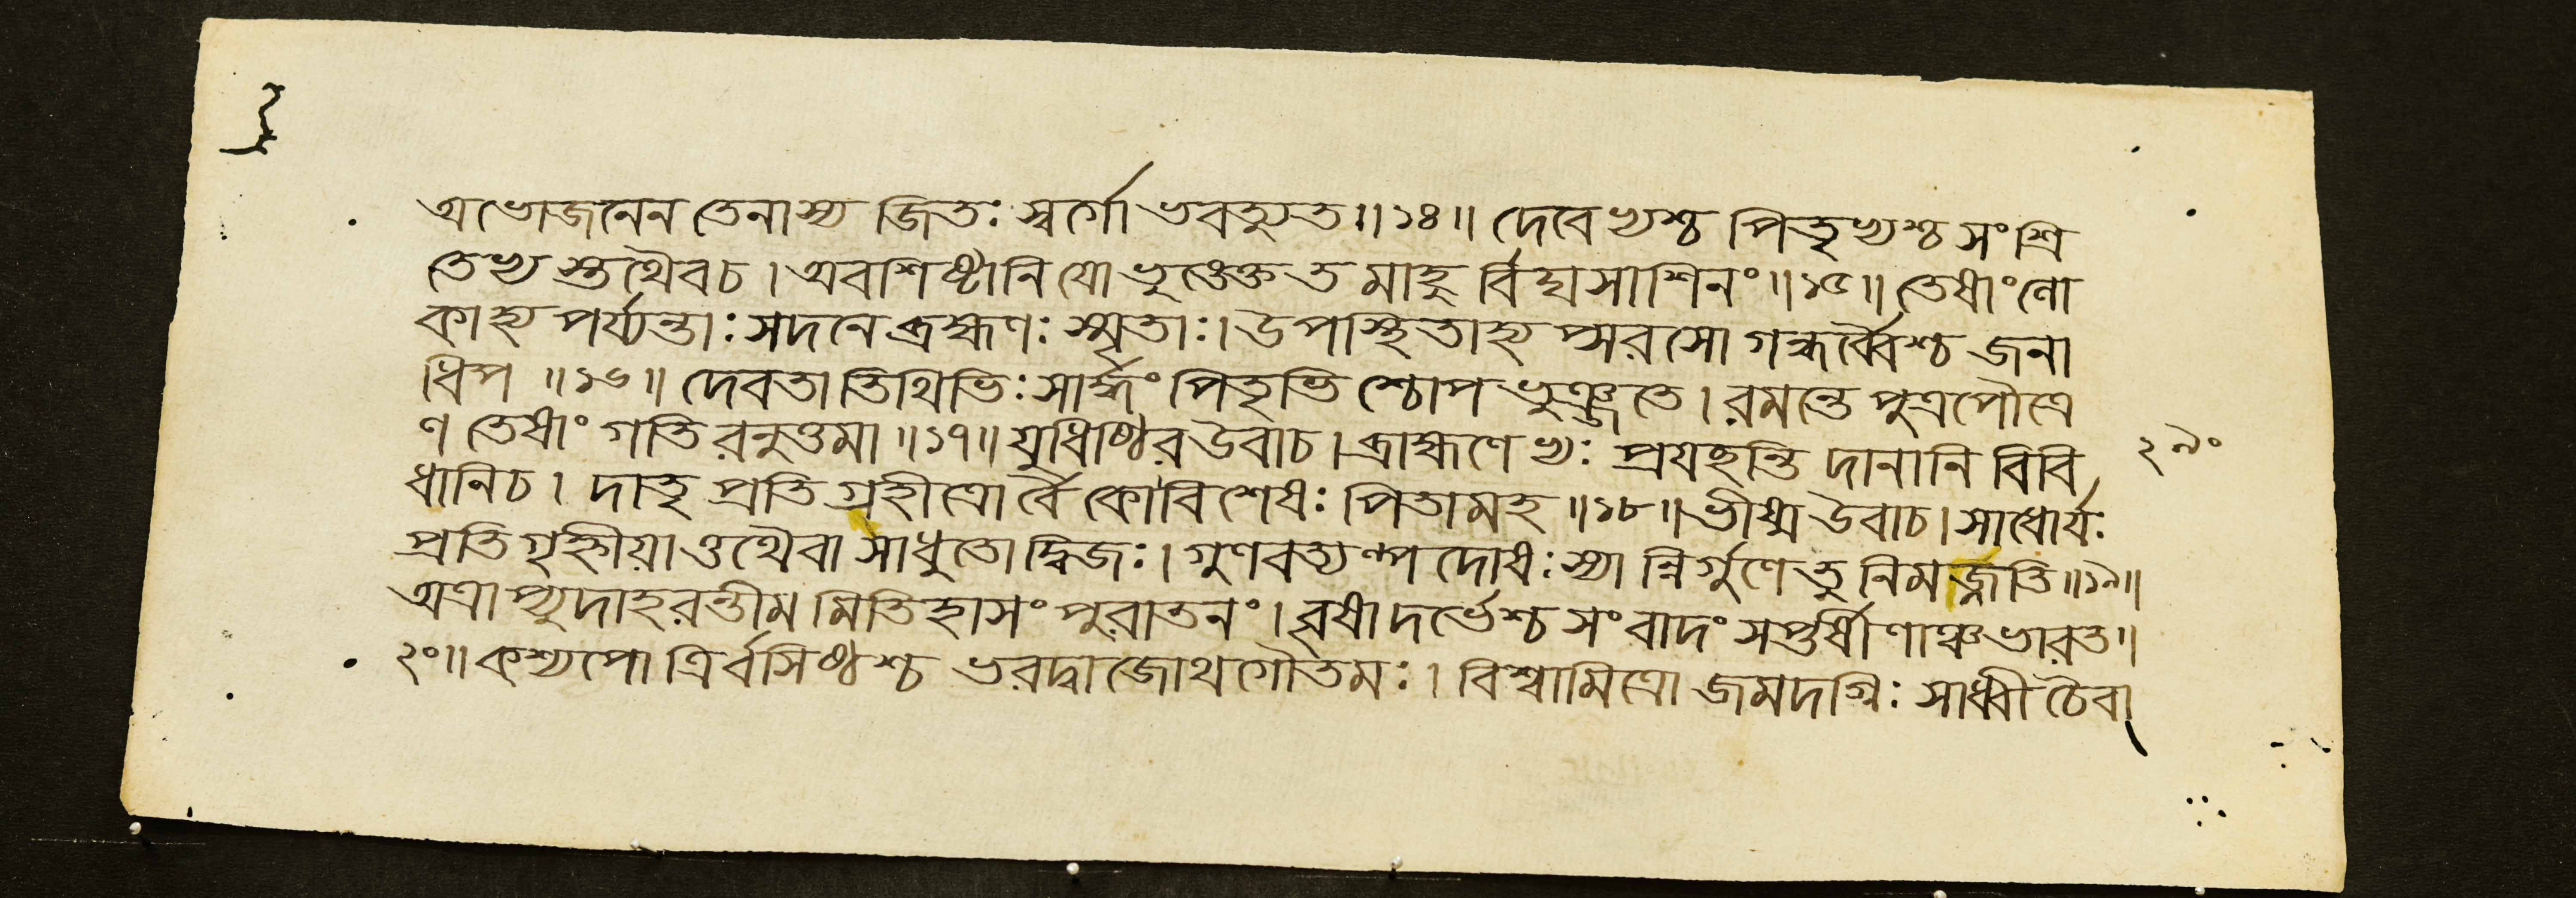 অভোজনেন তেনাস্য জিতঃ স্বর্গো ভবত্যুত॥১৪॥ দেবেভ্যশ্চ পিতৃভ্যশ্চ সংশ্রি
তেভ্যস্তথৈবচ। অবশিষ্টানি যো ভুঙ্ক্তে তমাহু র্বিঘসাশিনং॥১৫॥ তেষাং লো
কাহ্য পর্য্যন্তাঃ সদনে ব্রহ্মণঃ স্মৃতাঃ। উপস্থিতাহ্য প্সরসো গন্ধর্ব্বৈশ্চ জনা
ধিপ ॥১৬॥ দেবতাতিথিভিঃ সার্দ্ধং পিতৃভিশ্চোপভুঞ্জতে। রমন্তে পুত্রপৌত্রে
ণ তেষাং গতিরনুত্তমা॥১৭॥ যুধিষ্ঠির উবাচ। ব্রাহ্মণেভ্যঃ প্রযছন্তি দানানি বিবি
ধানিচ। দাতৃ প্রতিগ্রহীত্রোর্বৈ কোবিশেষঃ পিতামহ॥১৮॥ ভীষ্ম উবাচ। সাধোর্যঃ
প্রতিগৃহ্নীয়াত্তথৈবাসাধুতো দ্বিজঃ। গুণবত্যল্পদোষঃ স্যান্নির্গুণেতু নিমজ্জতি॥১৯॥
অত্রাপ্যুদাহরন্তীমমিতিহাসং পুরাতনং। বৃষাদর্ভেশ্চ সংবাদং সপ্তর্ষীণাঞ্চ ভারত॥
২০॥ কশ্যপোত্রির্বসিষ্ঠশ্চ ভরদ্বাজোথ গৌতমঃ। বিশ্বামিত্রো জমদগ্নিঃ সাধ্বীচৈবা
২৯০